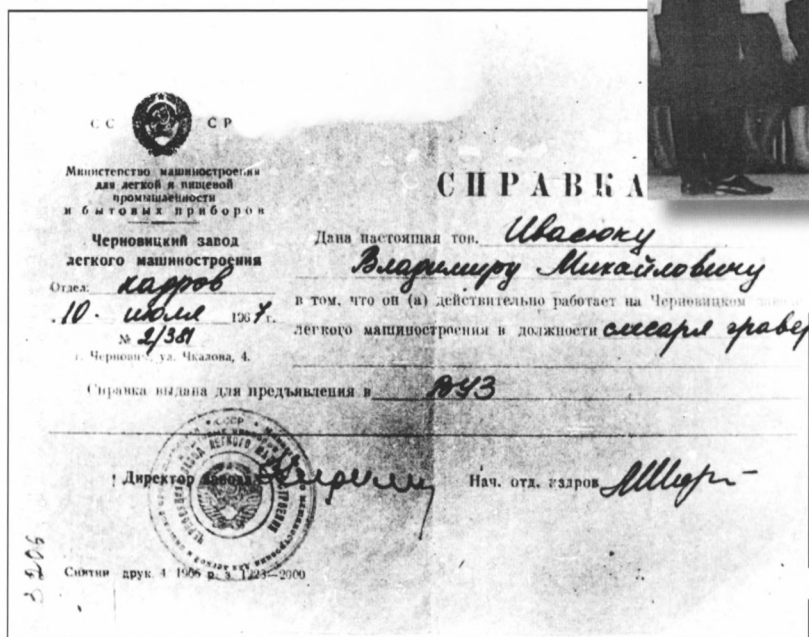 СС СР
Министерство машиностроения
для легкой и пищевой
промышленности
и бытовых приборов
Черновицкий завод
легкого машиностроения
Отдел: кадров
10. июля 1967 г.
№ 2/381
г. Черновцы, ул. Чкалова, 4.
СПРАВКА
Дана настоящая тов. Ивасюку
Владимиру Михайловичу
в том, что он (а) действительно работает на Черновицком
легкого машиностроения в должности слесаря гравер
Справка выдана для предъявления в ВУЗ
Директор завода
Нач. отд. кадров
Снятин друк. 4 1966 р. з. 1223—2000
3206